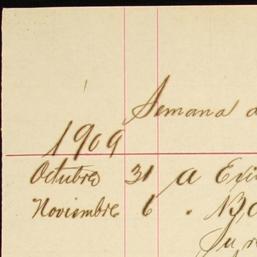 Semana
1909
Octubre 31 a
Noviembre 6 .
Su